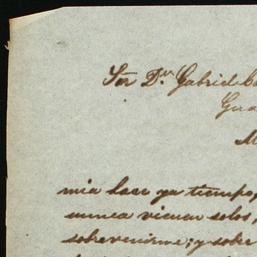 Sor Dn. Gabriel
mia hace ya tiempo,
nunca vienen solos,
sobrevenirme; y sobre